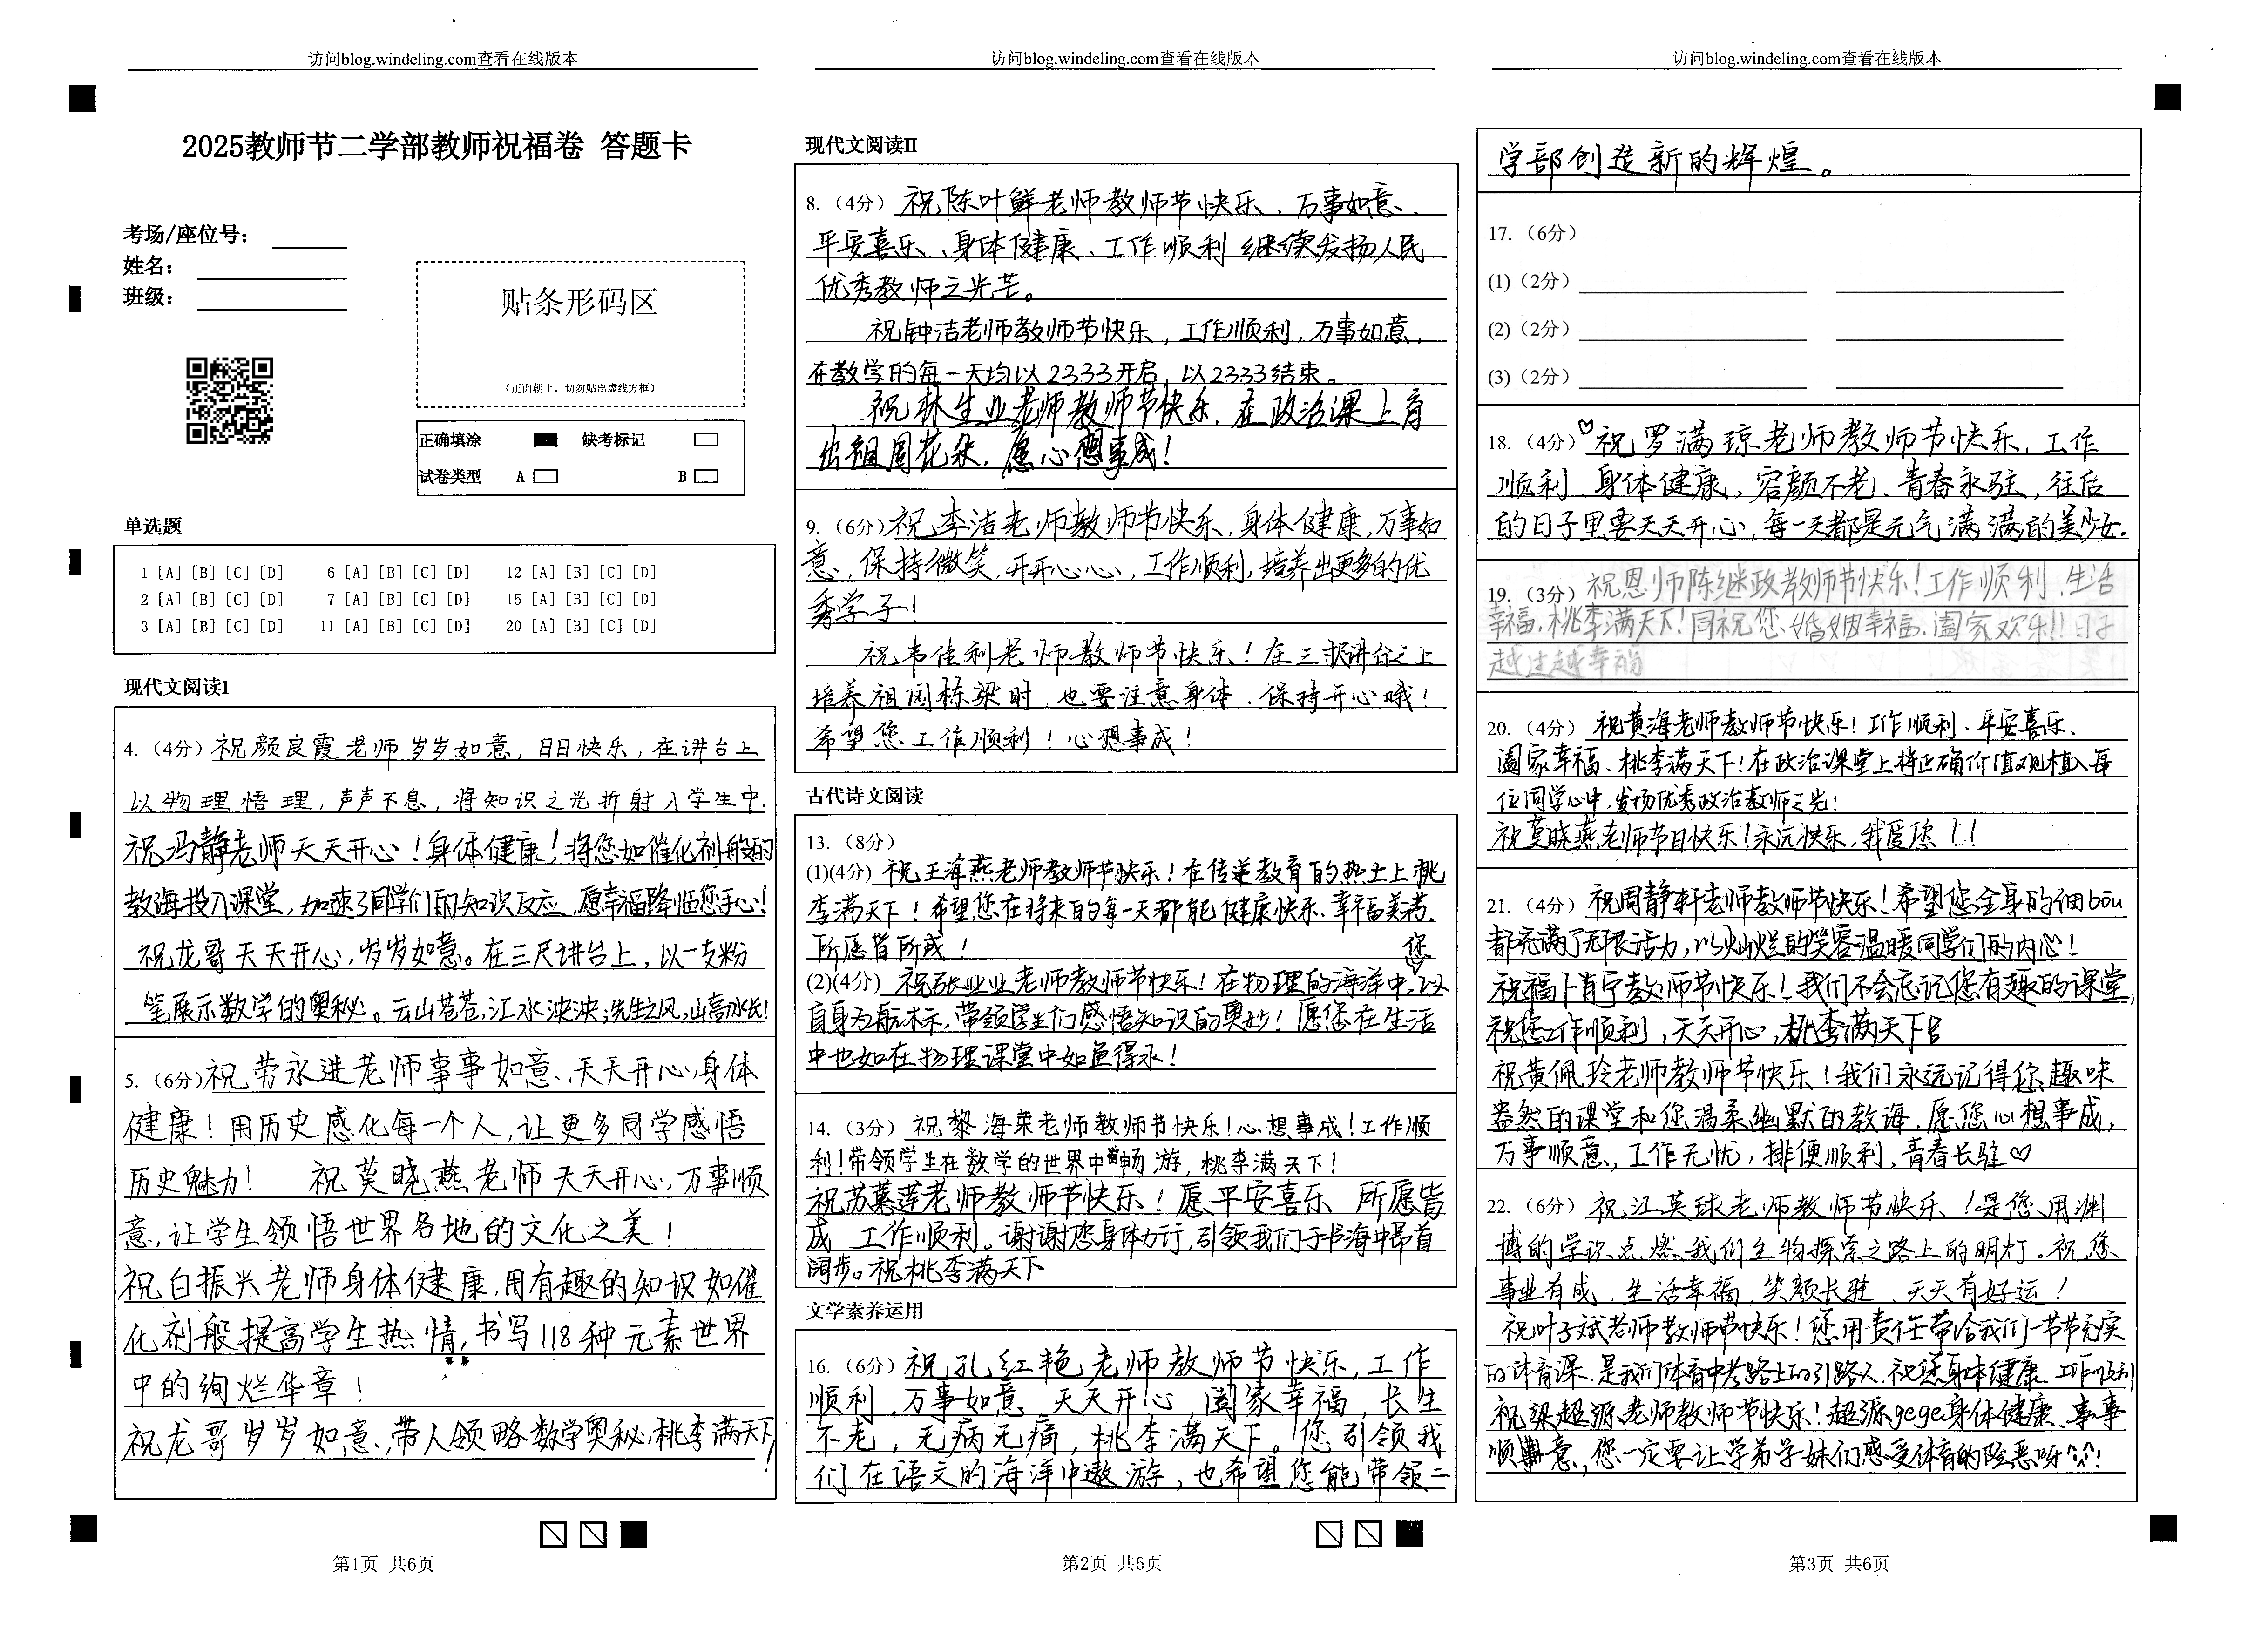 访问blog.windeling.com查看在线版本
2025教师节二学部教师祝福卷 答题卡
考场/座位号：
姓名：
班级：
贴条形码区
（正面朝上，切勿贴出虚线方框）
正确填涂 缺考标记
试卷类型 A B
单选题
1 [A] [B] [C] [D] 6 [A] [B] [C] [D] 12 [A] [B] [C] [D]
2 [A] [B] [C] [D] 7 [A] [B] [C] [D] 15 [A] [B] [C] [D]
3 [A] [B] [C] [D] 11 [A] [B] [C] [D] 20 [A] [B] [C] [D]
现代文阅读I
4.（4分）祝颜良霞老师岁岁如意，日日快乐，在讲台上
以物理悟理，声声不息，将知识之光折射入学生中.
祝冯静老师天天开心！身体健康！将您如催化剂般的
教诲投入课堂，加速了同学们的知识反应，愿幸福降临您手心！
祝龙哥天天开心，岁岁如意。在三尺讲台上，以一支粉
笔展示数学的奥秘。云山苍苍，江水泱泱；先生之风，山高水长！
5.（6分）祝劳永进老师事事如意、天天开心，身体
健康！用历史感化每一个人，让更多同学感悟
历史魅力！ 祝莫晓燕老师天天开心，万事顺
意，让学生领悟世界各地的文化之美！
祝白振兴老师身体健康，用有趣的知识如催
化剂般提高学生热情，书写118种元素世界
中的绚烂华章！
祝龙哥岁岁如意，带人领略数学奥秘，桃李满天下！
第1页 共6页
访问blog.windeling.com查看在线版本
现代文阅读II
8.（4分）祝陈叶鲜老师教师节快乐，万事如意、
平安喜乐、身体健康、工作顺利 继续发扬人民
优秀教师之光芒。
祝钟洁老师教师节快乐，工作顺利，万事如意，
在教学的每一天均以2333开启，以2333结束。
祝林生业老师教师节快乐，在政治课上育
出祖国花朵，愿心想事成！
9.（6分）祝李洁老师教师节快乐、身体健康，万事如
意，保持微笑，开开心心，工作顺利，培养出更多的优
秀学子！
祝韦佳利老师教师节快乐！在三尺讲台之上
培养祖国栋梁时，也要注意身体，保持开心哦！
希望您工作顺利！心想事成！
古代诗文阅读
13.（8分）
(1)(4分) 祝王海燕老师教师节快乐！在传递教育的热土上桃
李满天下！希望您在将来的每一天都能健康快乐、幸福美满，
所愿皆所成！
(2)(4分) 祝张业业老师教师节快乐！在物理的海洋中，您以
自身为航标，带领学生们感悟知识的奥妙！愿您在生活
中也如在物理课堂中如鱼得水！
14.（3分）祝黎海荣老师教师节快乐！心想事成！工作顺
利！带领学生在数学的世界中畅游，桃李满天下！
祝苏慕莲老师教师节快乐！愿平安喜乐 所愿皆
成 工作顺利。谢谢您身体力行，引领我们于书海中昂首
阔步。祝桃李满天下
文学素养运用
16.（6分）祝孔红艳老师教师节快乐，工作
顺利，万事如意，天天开心，阖家幸福，长生
不老，无病无痛，桃李满天下。您引领我
们在语文的海洋中遨游，也希望您能带领二
第2页 共6页
访问blog.windeling.com查看在线版本
学部创造新的辉煌。
17.（6分）
(1)（2分）
(2)（2分）
(3)（2分）
18.（4分）♡祝罗满琼老师教师节快乐，工作
顺利，身体健康，容颜不老，青春永驻，往后
的日子里要天天开心，每一天都是元气满满的美少女.
19.（3分）祝恩师陈继政教师节快乐！工作顺利！生活
幸福，桃李满天下！同祝您婚姻幸福，阖家欢乐！！日子
越过越幸福
20.（4分）祝黄海老师教师节快乐！工作顺利、平安喜乐、
阖家幸福、桃李满天下！在政治课堂上将正确价值观植入每
位同学心中，发扬优秀政治教师之光！
祝莫晓燕老师节日快乐！永远快乐，我爱您！！
21.（4分）祝周静轩老师教师节快乐！希望您全身的细bāo
都充满了无限活力，以灿烂的笑容温暖同学们的内心！
祝福卜肖宁教师节快乐！我们不会忘记您有趣的课堂，
祝您工作顺利，天天开心，桃李满天下
祝黄佩玲老师教师节快乐！我们永远记得你趣味
盎然的课堂和您温柔幽默的教诲，愿您心想事成，
万事顺意，工作无忧，排便顺利，青春长驻♡
22.（6分）祝江英球老师教师节快乐！是您用渊
博的学识点燃我们生物探索之路上的明灯。祝您
事业有成，生活幸福，笑颜长驻，天天有好运！
祝叶子斌老师教师节快乐！您用责任带给我们一节节充实
的体育课，是我们体育中考路上的引路人，祝您身体健康，工作顺利
祝梁超源老师教师节快乐！超源gege身体健康、事事
顺意，您一定要让学弟学妹们感受体育的险恶呀^^!
第3页 共6页